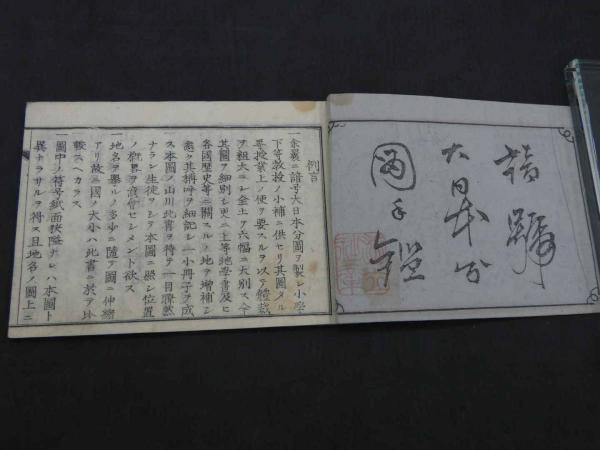 諳號
大日本分
圖手鑑
例言
一余曩ニ諳号大日本分圖ヲ製シ小學
下等教授ノ小補ニ供セリ其圖タル
専授業上ノ便ヲ要スルヲ以テ體裁
ヲ粗大ニシ全土ヲ六幅ニ大別ス今
其圖ヲ細別シ更ニ上等地學書及ヒ
各國歴史等ニ關スルノ地ヲ増補シ
悉ク其稱呼ヲ細記シ一小冊子ヲ成
ス本圖ノ山川此書ヲ待テ一目瞭然
ナラン生徒ヲシテ本圖ニ照シ位置
ノ概畧ヲ會セシメント欲ス
一地名ヲ擧ルノ多少ニ隨テ圖ノ伸縮
アリ故ニ國ノ大小ハ此書ニ於テ比
較スヘカラス
一圖中ノ符号紙面狹隘ナレハ本圖ト
異ナラサルヲ得ス且地名ノ圖上ニ